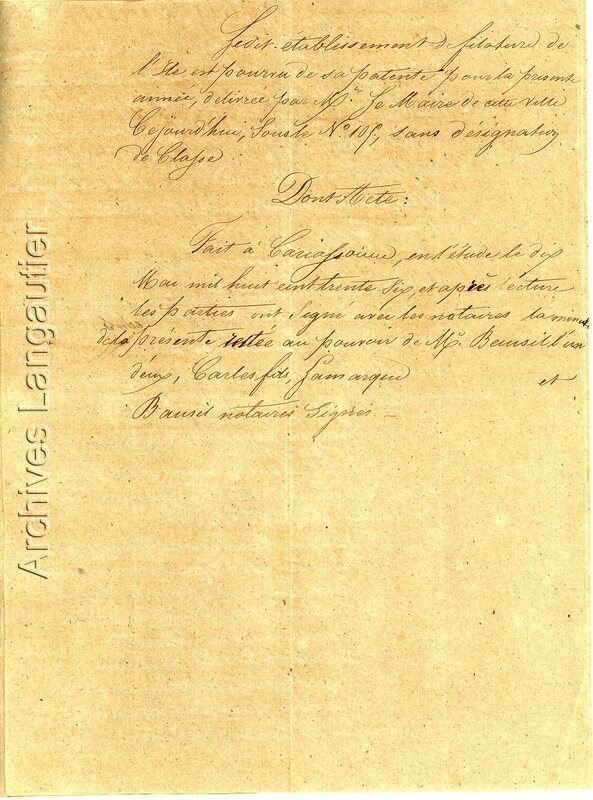 Ledit établissement de filature de
l'Ile est pourvu de sa patente pour la présente
année, délivrée par Mr. Le Maire de cette ville
Cejourd'hui, Sous le No. 105, sans désignation
de Classe
Dont Acte:
Fait à Carcassonne, en l'étude le dix
Mai mil huit cent trente Six, et après lecture
les parties ont Signé avec les notaires la minute
de la présente restée au pouvoir de Me. Bausil l'un
d'eux, Carles fils, Lamarque et
Bausil notaires Signés. –
Archives Langautier